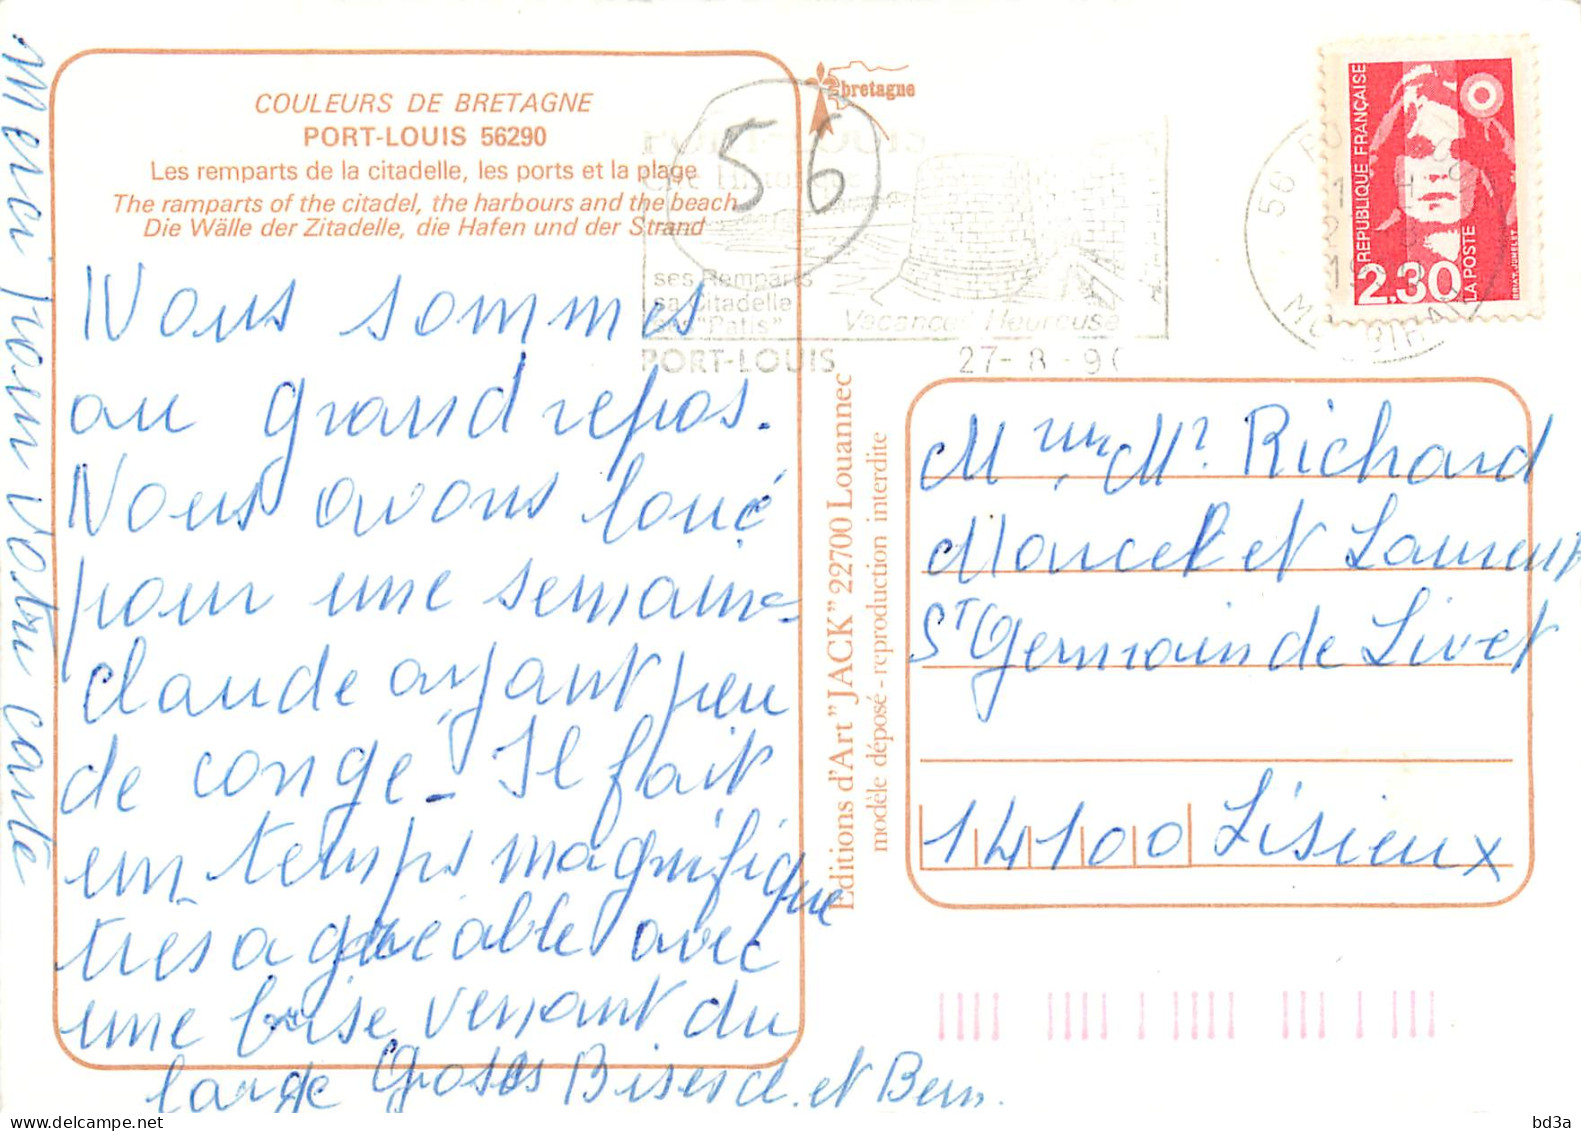 COULEURS DE BRETAGNE
PORT-LOUIS 56290
Les remparts de la citadelle, les ports et la plage
The ramparts of the citadel, the harbours and the beach
Die Wälle der Zitadelle, die Hafen und der Strand
Nous sommes
au grand repos.
Nous avons loué
pour une semaine
Claude ayant peu
de congé - Il fait
un temps magnifique
très agréable avec
une brise venant du
large Groses Bises d. et Bern.
Merci pour votre carte
bretagne
56
PORT-LOUIS
ses Remparts
sa Citadelle
ses "Patis"
Vacances Heureuse
PORT-LOUIS
27-8-9
56
MORBIHAN
REPUBLIQUE FRANÇAISE
2,30
LA POSTE
Editions d'Art "JACK" 22700 Louannec
modèle déposé - reproduction interdite
Mme, Mr. Richard
Marcel et Laurent
ST Germain de Livet
14100 Lisieux
bd3a